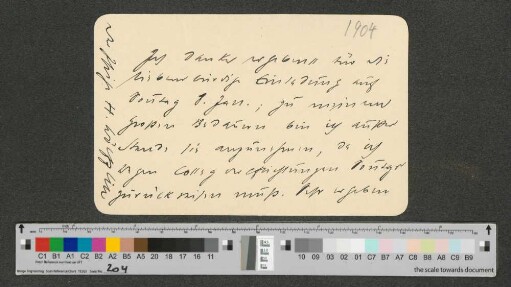 1904
Ich danke ergebenst für die
liebenswürdige Einladung auf
Sontag 8. Jan.; zu meinem
großen Bedauern bin ich außer
Stande sie anzunehmen, da ich
wegen Collegverpflichtungen Sontags
zurückreisen muß. Ihr ergeben
H. Wölfflin
C1 B1 A1 C2 B2 A2 B5 A5 20 18 17 16 11
10 09 03 02 01 C7 B7 A7 C8 B8 A8 C9 B9
204
the scale towards document